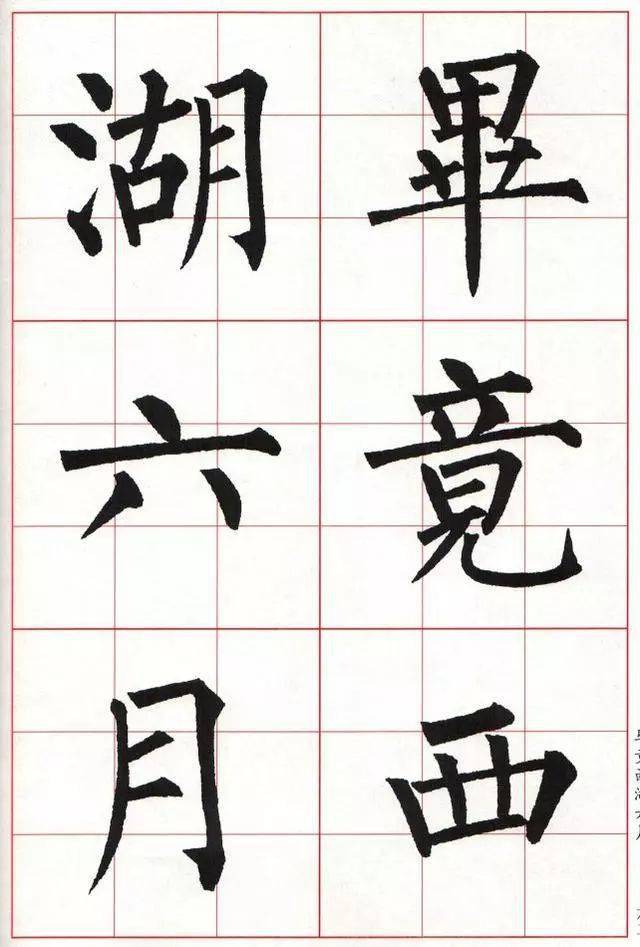 畢竟西
湖六月